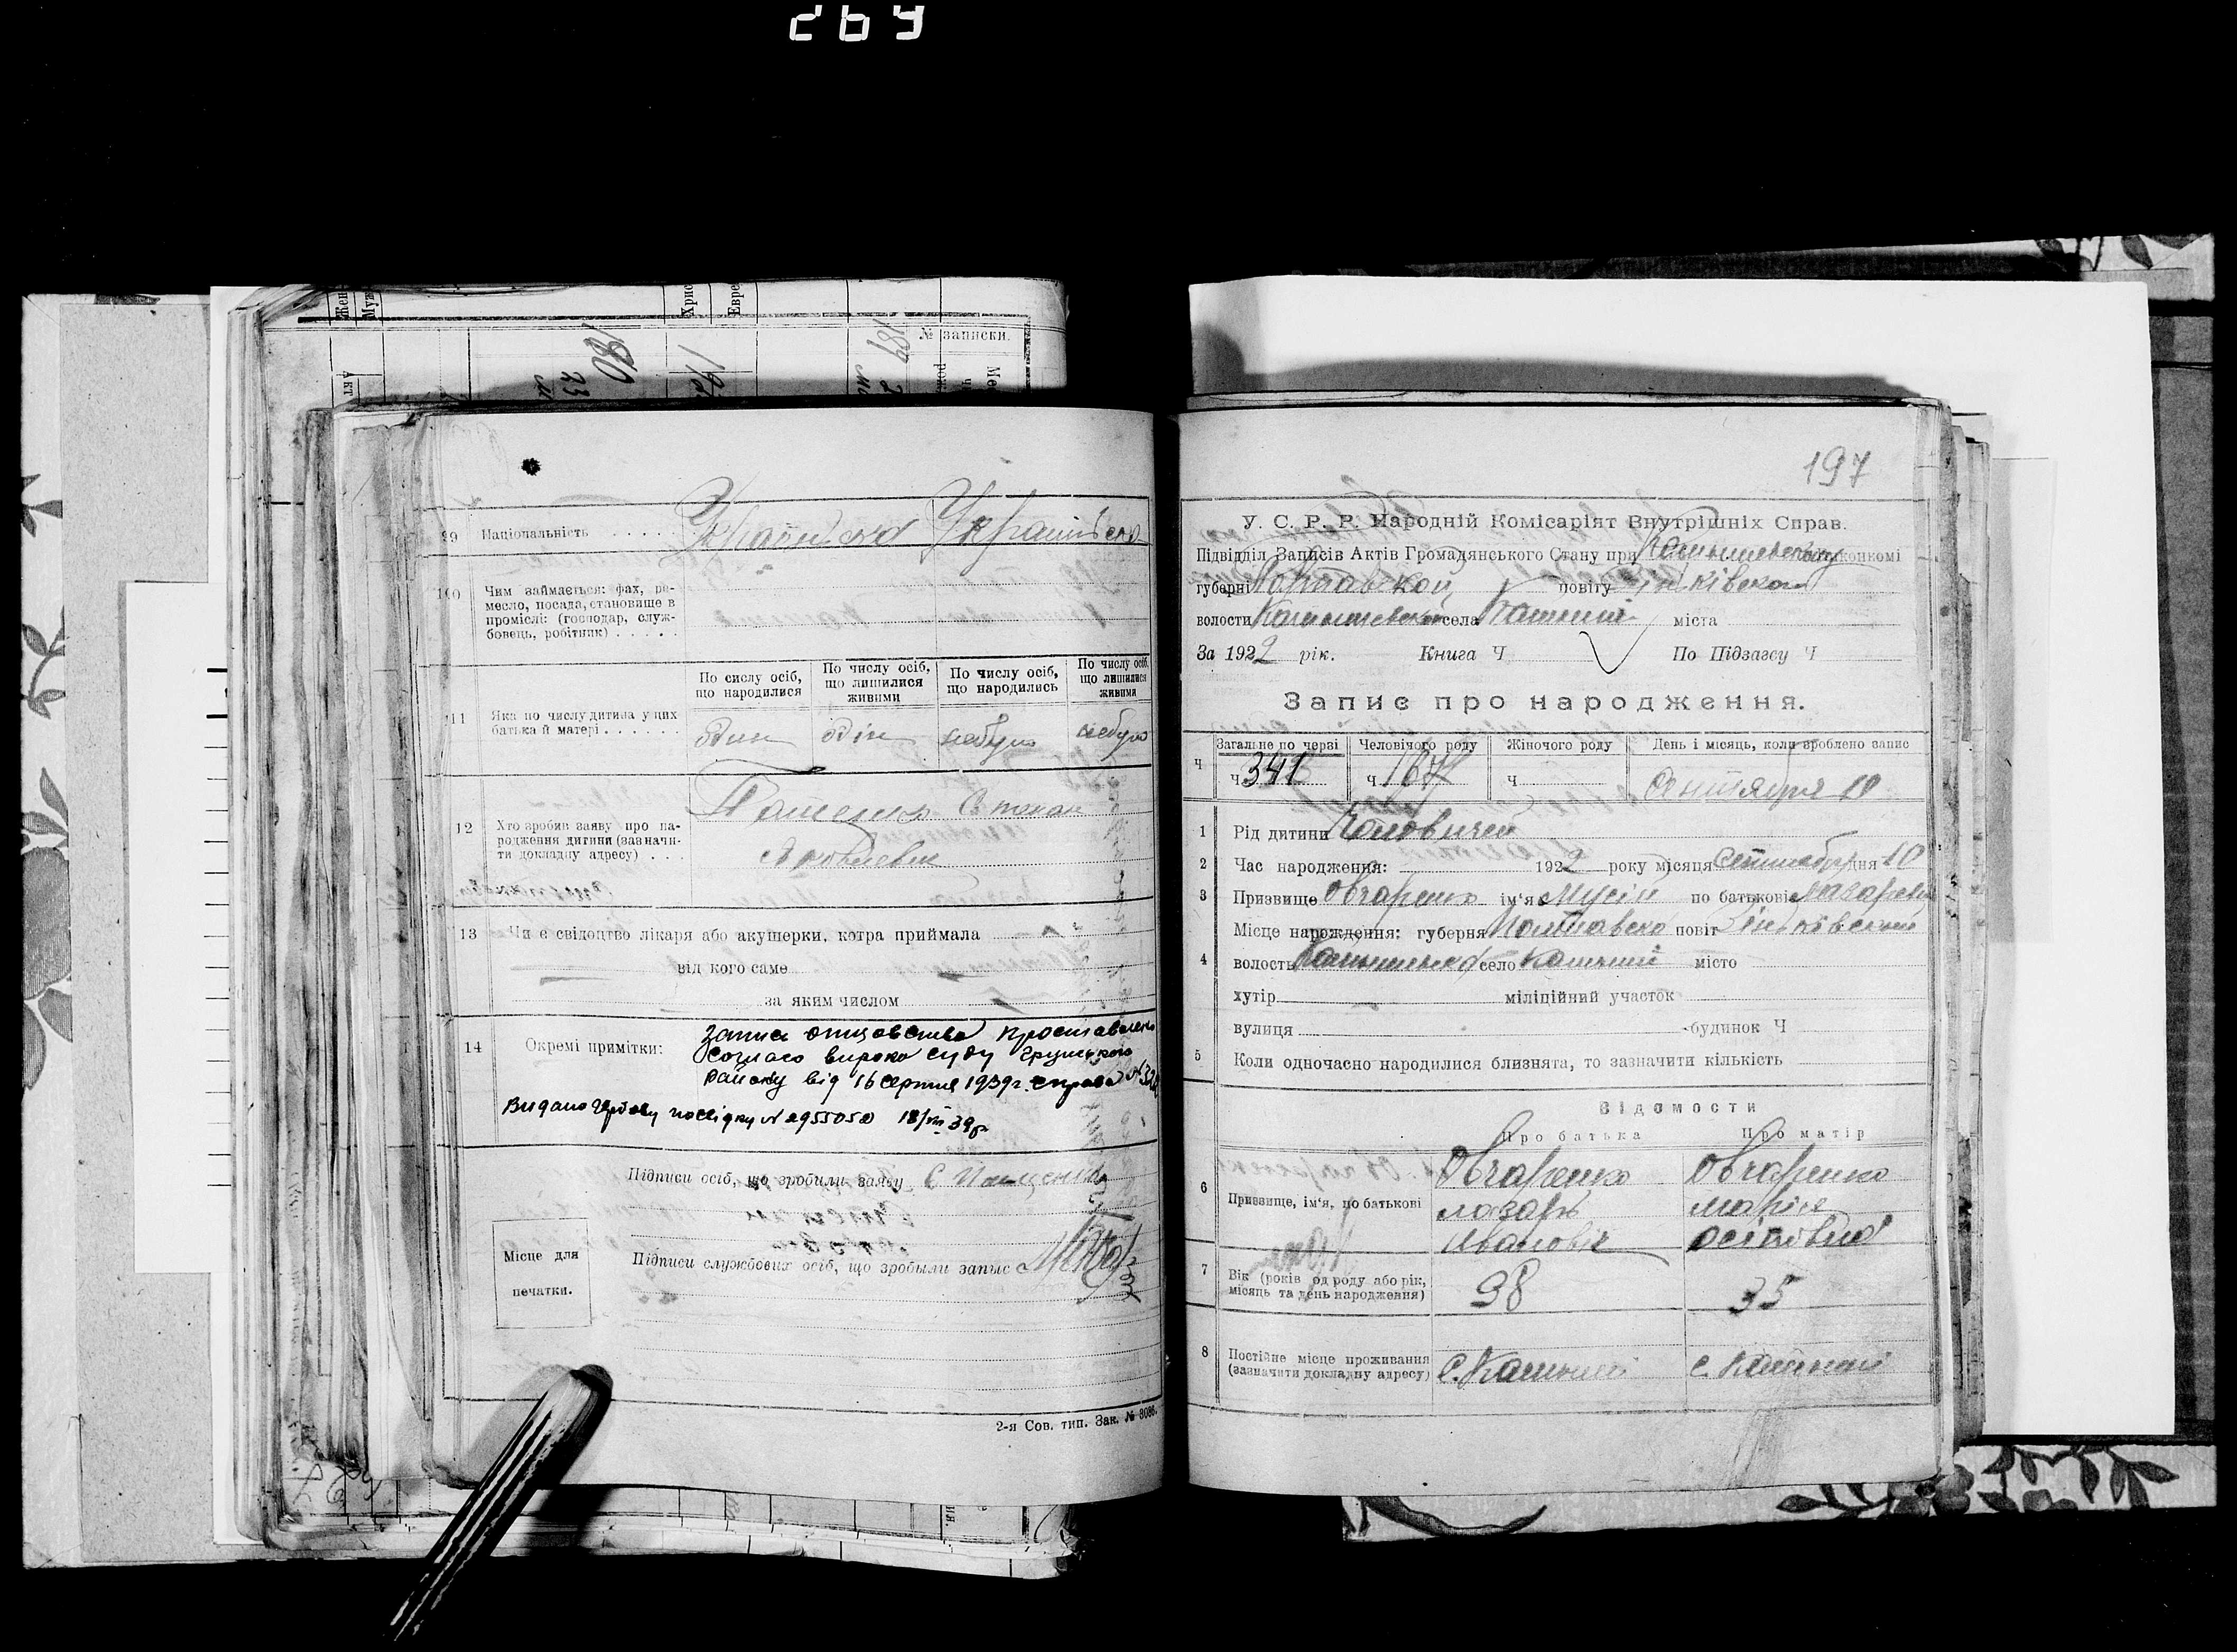 269
Жен
Муж
Хрис
Евре
№ записки.
189
190
23
Акт
99 Національність . . . . Українська Українська
100 Чим займається: фах, ре-
месло, посада, становище в
промислі: (господар, служ-
бовець, робітник) . . . . .
По сислу осіб, що народилися
По числу осіб, що лишилися живими
По числу осіб, що народились
По числу осіб, що лишилися живими
111 Яка по числу дитина у цих
батька й матері . . . . . .
Один Один небуло небуло
12 Хто зробив заяву про на-
родження дитини (зазначи-
ти докладну адресу) . . .
Пащенко Степан
Яковлевич
13 Чи є свідоцтво лікаря або акушерки, котра приймала
від кого саме
за яким числом
14 Окремі примітки:
Запис отцовства проставлено
согласо вироко суду Грунського
району від 16 серпня 1939 г. справа №
Видано Гербову посвідку № 2955050 18/VIII 39 р
Підписи осіб, що зробили заяву С Пащенко
Місце для
печатки.
Підписи службових осіб, що зробыли запис
2-я Сов. тип. Зак. № 3036.
197
У. С. Р. Р. Народній Комісаріят Внутрішніх Справ.
Підвідділ Записів Актів Громадянського Стану при
губерні Полтавской повіту Зіньківского
волости села міста
За 1922 рік. Книга Ч По Підзагсу Ч
Запис про народження.
Загальне по черзі Человічого роду Жіночого роду День і місяць, коли зроблено запис
Ч ч. 341 ч. 167 ч Сентября 10
1 Рід дитини Чоловичей
2 Час народження: 1922 року місяця Сентября дня 10
3 Призвище Овчаренко ім'я Мусій по батькові Лазаревич
Місце народження: губерня Полтавска повіт Зіньківский
4 волость село місто
хутір міліційний участок
вулиця будинок Ч
5 Коли одночасно народилися близнята, то зазначити кількість
Відомости
Про батька Про матір
6 Призвище, ім'я, по батькові
Овчаренко Овчаренко
Лазарь Марія
Иванович Осіповна
7 Вік (років од роду або рік,
місяць та день народження) 38 35
8 Постійне місце проживання
(зазначити докладну адресу)